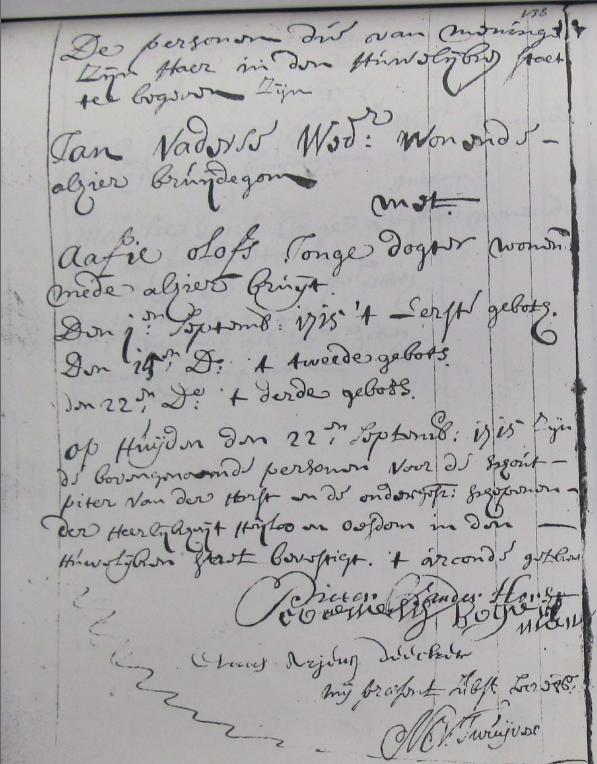 De personen die van meninge
Zijn Haer in den Huwelijken staet
te begeven Zijn
Jan Vaderse Wedr: Wonende
alhier bruijdegom
met
Aafie olofs Jonge dogter wonen
mede alhier bruijt
Den 1en Septemb: 1715 't Eerste gebott.
Den 15en Do: 't tweede gebott.
den 22en Do: 't derde gebott.
op Huijden den 22en Septemb: 1715 Zijn
de bovengenoemde personen voor de schout
piter van der Horst en de ondergeschr: schepenen
der Heerlijkheijt Heijloo en Oesdom in den
Huwelijken staet bevestigt. 't arconde getken
Pieter vander Horst
Claas Arjensz deecker
mij present